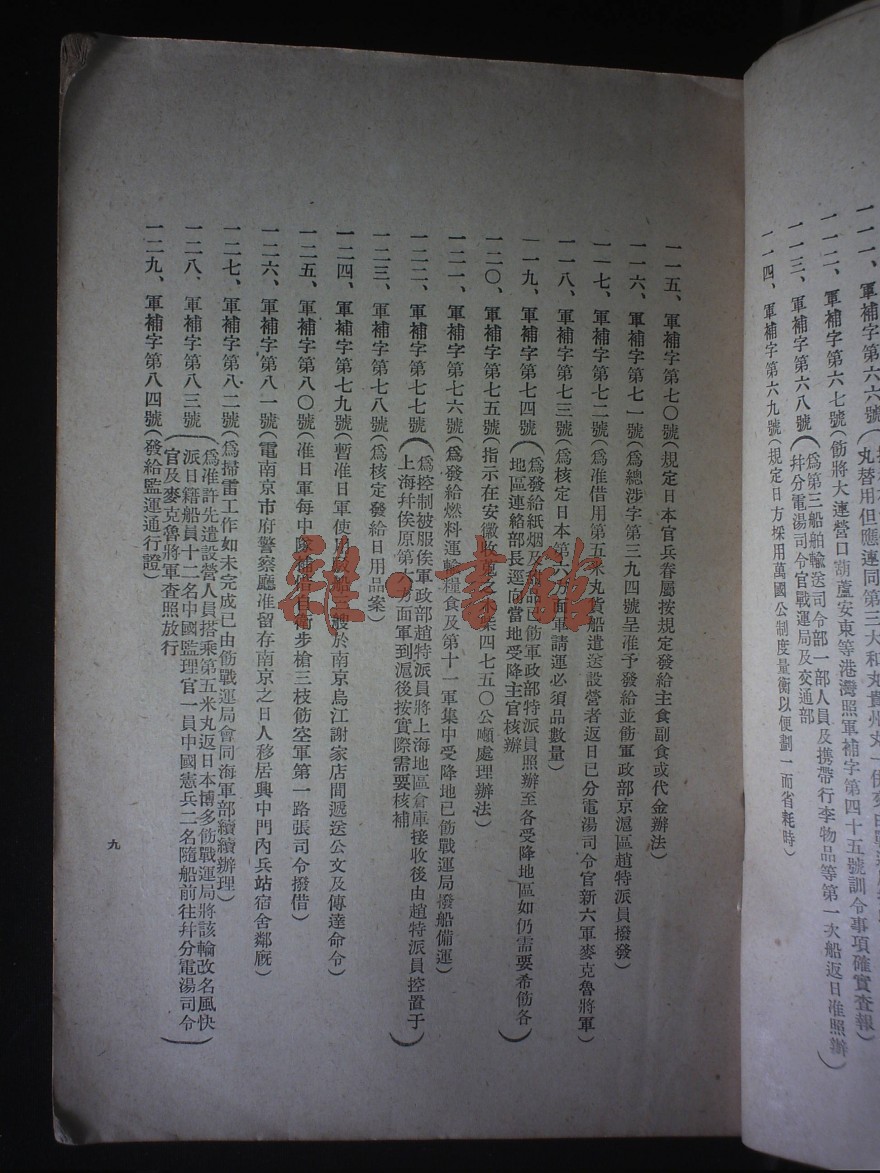 一一一、軍補字第六六號
丸替用但應連同第三大和丸貴州丸一併列
一一二、軍補字第六七號(飭將大連營口葫蘆安東等港灣照軍補字第四十五號訓令事項確實查報)
一一三、軍補字第六八號(為第三船舶輸送司令部一部人員及携帶行李物品等第一次船返日准照辦
幷分電湯司令官戰運局及交通部)
一一四、軍補字第六九號(規定日方採用萬國公制度量衡以便劃一而省耗時)
一一五、軍補字第七〇號(規定日本官兵眷屬按規定發給主食副食或代金辦法)
一一六、軍補字第七一號(為總涉字第三九四號呈准予發給並飭軍政部京滬區趙特派員撥發)
一一七、軍補字第七二號(為准借用第五米丸貨船遣送設營者返日已分電湯司令官新六軍麥克魯將軍)
一一八、軍補字第七三號(為核定日本第六方面軍請運必須品數量)
一一九、軍補字第七四號(為發給紙烟及 品已飭軍政部特派員照辦至各受降地區如仍需要希飭各
地區連絡部長逕向當地受降主官核辦)
一二〇、軍補字第七五號(指示在安徽收 之 四七五〇公噸處理辦法)
一二一、軍補字第七六號(為發給燃料運輸糧食及第十一軍集中受降地已飭戰運局撥船備運)
一二二、軍補字第七七號(為控制被服俟軍政部趙特派員將上海地區倉庫接收後由趙特派員控置于
上海幷俟原第六方面軍到滬後按實際需要核補)
一二三、軍補字第七八號(為核定發給日用品案)
一二四、軍補字第七九號(暫准日軍使用 船 艘於南京烏江謝家店間遞送公文及傳達命令)
一二五、軍補字第八〇號(准日軍每中隊 借自衛步槍三枝飭空軍第一路張司令撥借)
一二六、軍補字第八一號(電南京市府警察廳准留存南京之日人移居興中門內兵站宿舍鄰廠)
一二七、軍補字第八二號(為掃雷工作如未完成已由飭戰運局會同海軍部續續辦理)
一二八、軍補字第八三號(為准許先遣設營人員搭乘第五米丸返日本博多飭戰運局將該輪改名風快
派日籍船員十二名中國監理官一員中國憲兵二名隨船前往幷分電湯司令
官及麥克魯將軍查照放行)
一二九、軍補字第八四號(發給監運通行證)
九
雜·書館